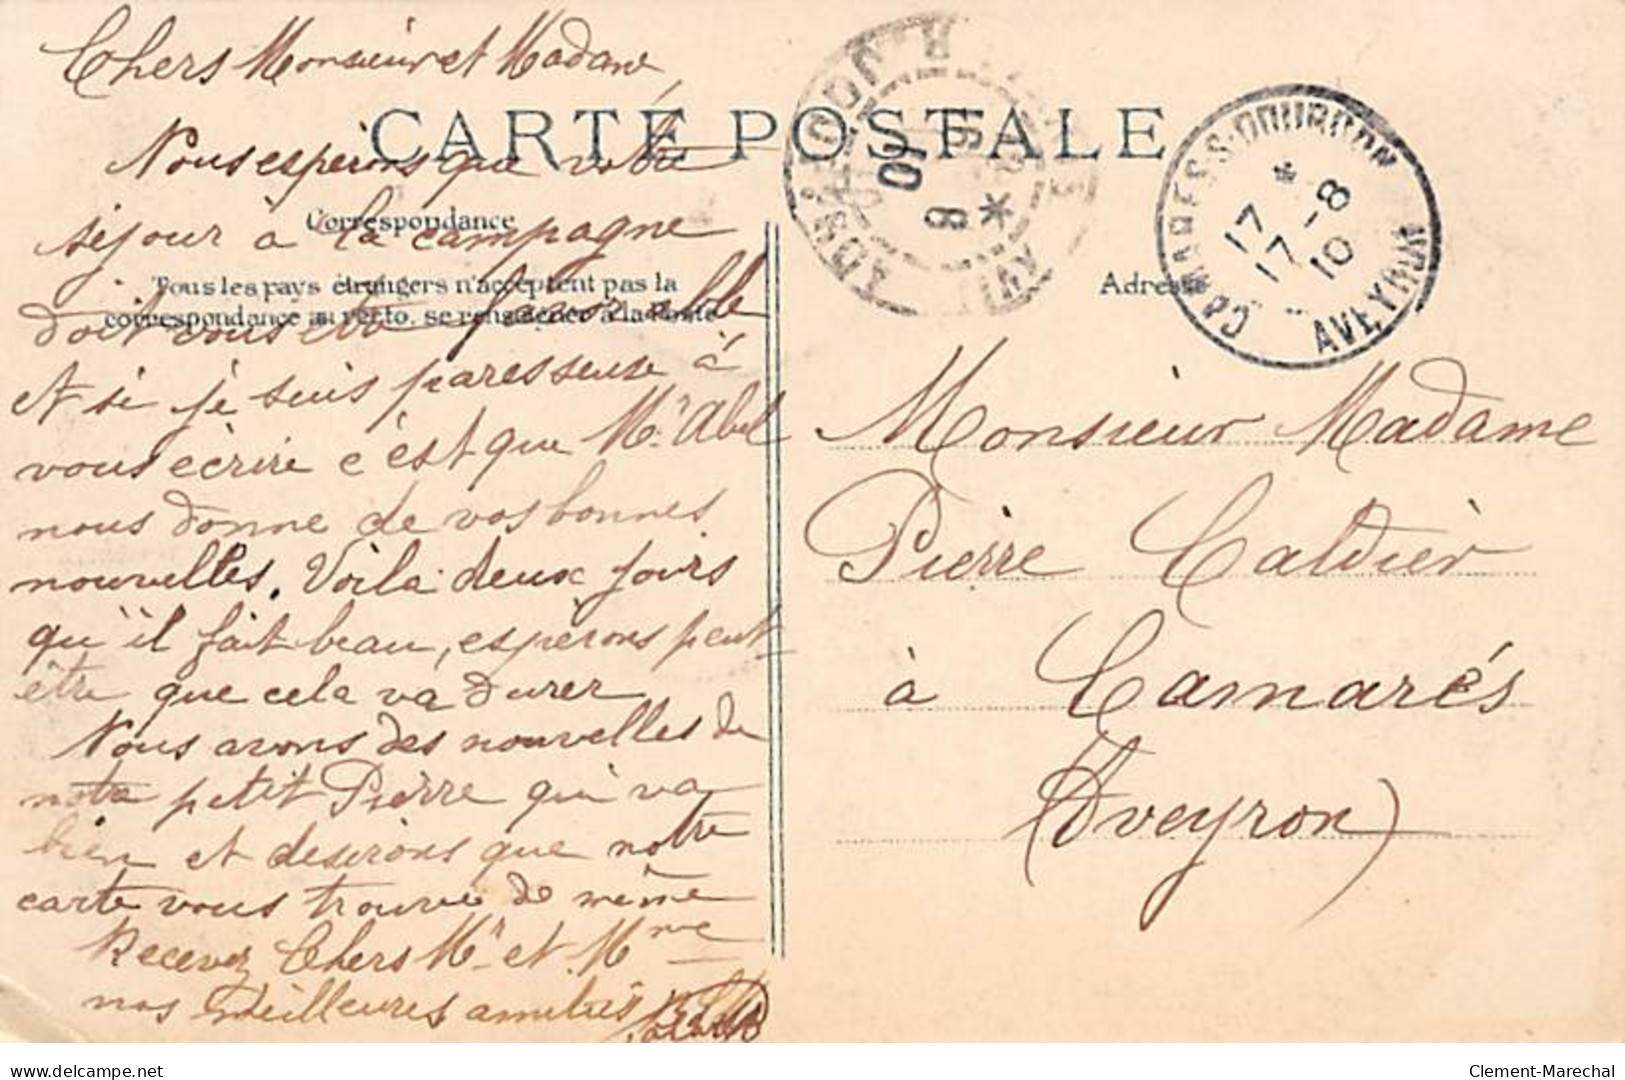 Chers Monsieur et Madame
CARTE POSTALE
Nous esperons que votre
Correspondance
séjour à la campagne
Tous les pays étrangers n'acceptent pas la
correspondance au recto, se renseigner à la Poste
doit vous être favorable
Et si je suis paresseuse à
vous écrire c'est que Mr Abel
nous donne de vos bonnes
nouvelles. Voila deux jours
qu'il fait beau, espérons peut-
être que cela va durer
Nous avons des nouvelles de
notre petit Pierre qui va
bien et desirons que notre
carte vous trouve de même
Recevez Chers Mr et Mme
nos meilleures amitiés
CAMARES-S-DOURDON
17 *
17 -8
10
AVEYRON
* 8
10
Adresse
Monsieur Madame
Pierre Caldier
à Camarés
(Aveyron)
delcampe.net
Clement-Marechal